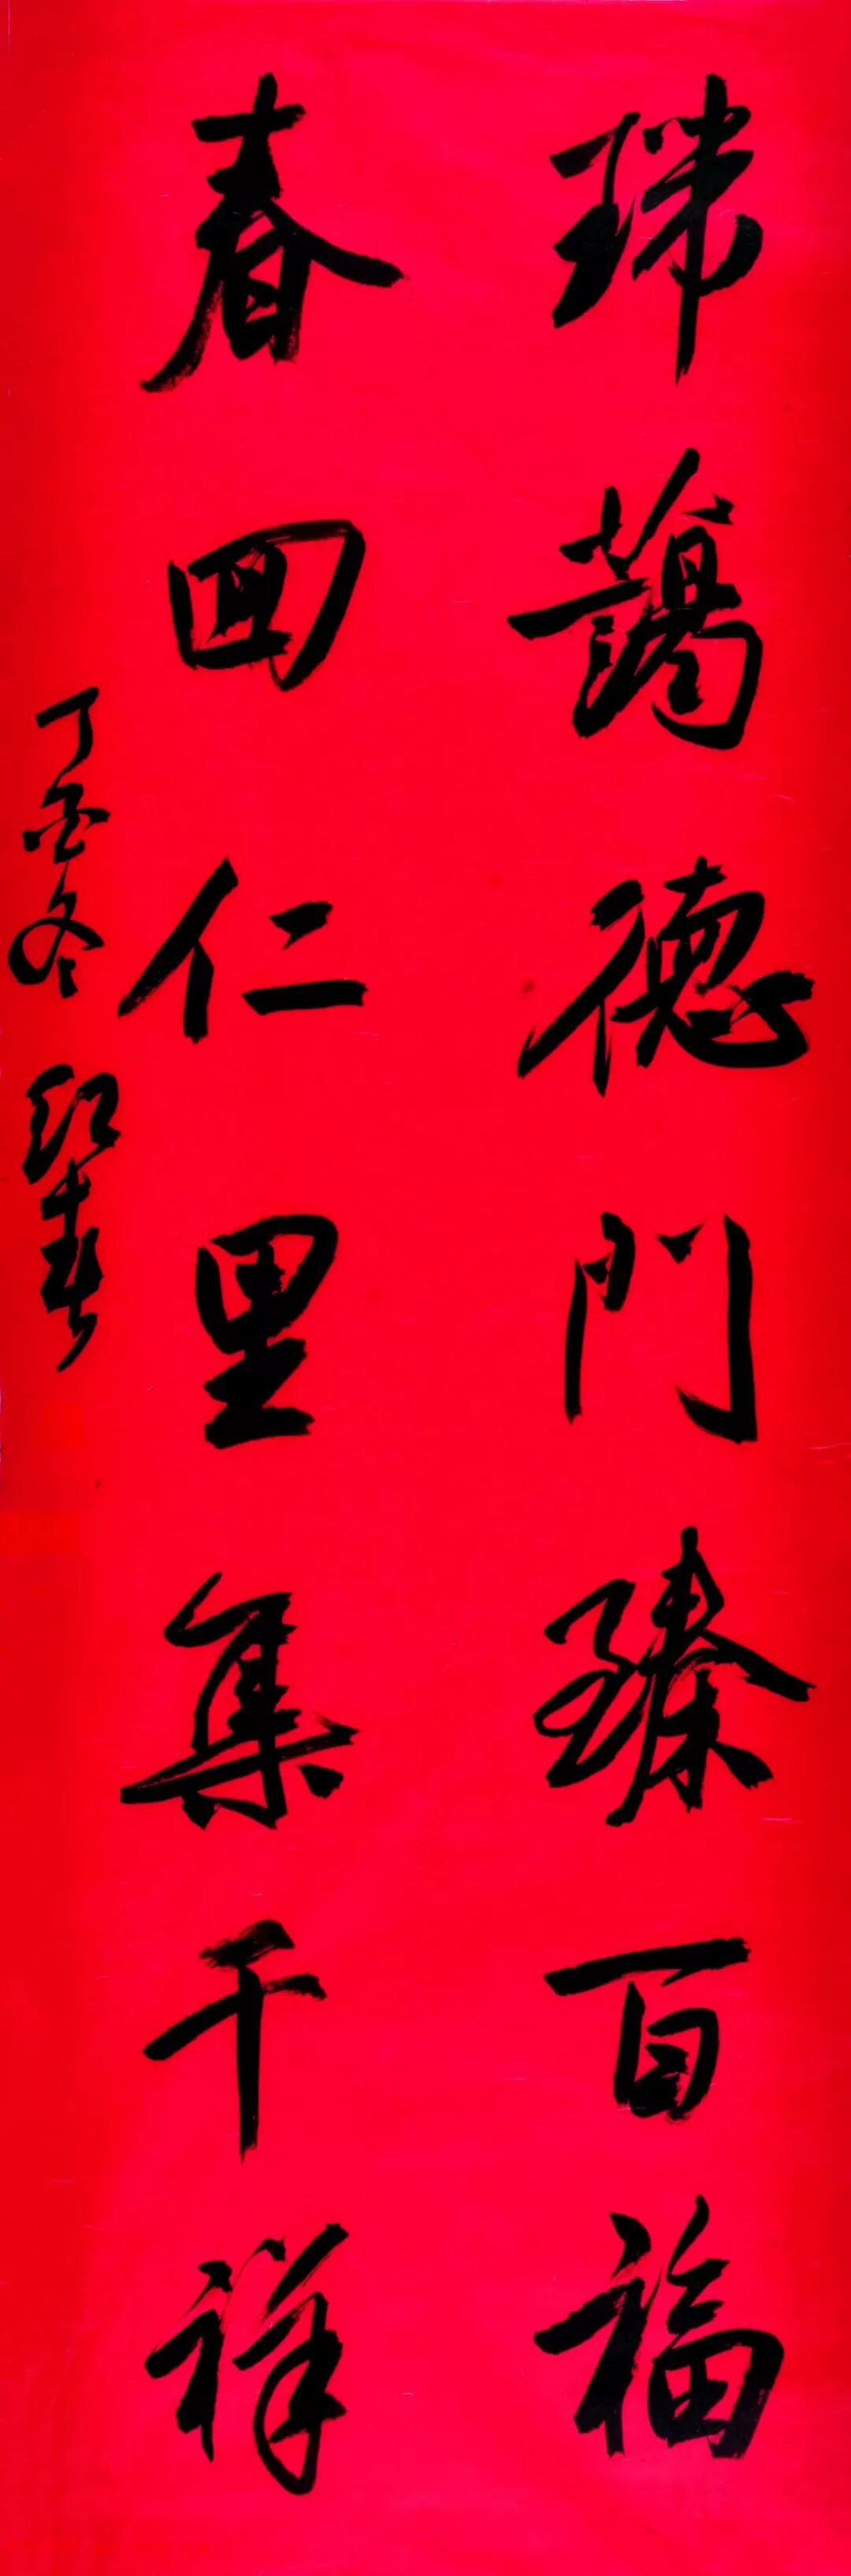 瑞藹德門臻百福
春回仁里集千祥
丁酉冬 紅春